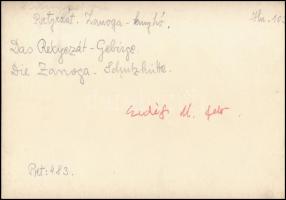 Retyezát. Zanoga-kunyhó.
Das Rétyezát-Gebirge
Die Zanoga-Schutzhütte.
Erdélyi M. felv.